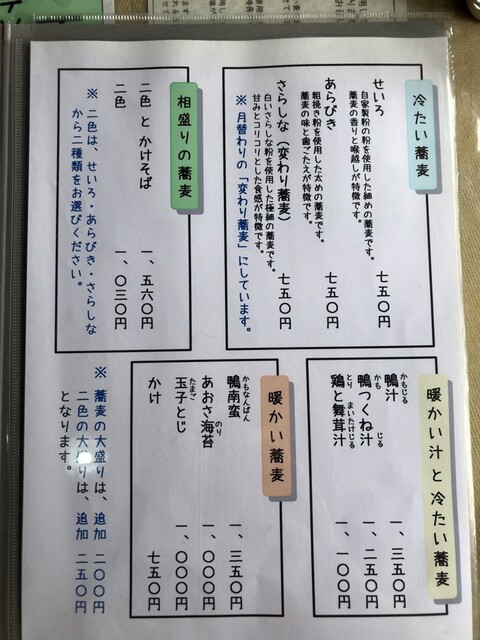 冷たい蕎麦
せいろ 七五〇円
自家製粉の粉を使用した細めの蕎麦です。
蕎麦の香りと喉越しが特徴です。
あらびき 七五〇円
粗挽き粉を使用した太めの蕎麦です。
蕎麦の味と歯ごたえが特徴です。
さらしな（変わり蕎麦） 七五〇円
白いさらしな粉を使用した極細の蕎麦です。
甘みとコリコリとした食感が特徴です。
※ 月替わりの「変わり蕎麦」にしています。
相盛りの蕎麦
二色 と かけそば 一、五六〇円
二色 一、〇三〇円
※ 二色は、せいろ・あらびき・さらしな
から二種類をお選びください。
暖かい汁 と 冷たい蕎麦
鴨汁 一、三五〇円
かもじる
鴨つくね汁 一、二五〇円
かも じる
鶏と舞茸汁 一、一〇〇円
とり まいたけじる
暖かい蕎麦
鴨南蛮 一、三五〇円
かもなんばん
あおさ海苔 一、〇〇〇円
のり
玉子とじ 一、〇〇〇円
たまご
かけ 七五〇円
※ 蕎麦の大盛りは、追加 二〇〇円
二色の大盛りは、追加 二五〇円
となります。